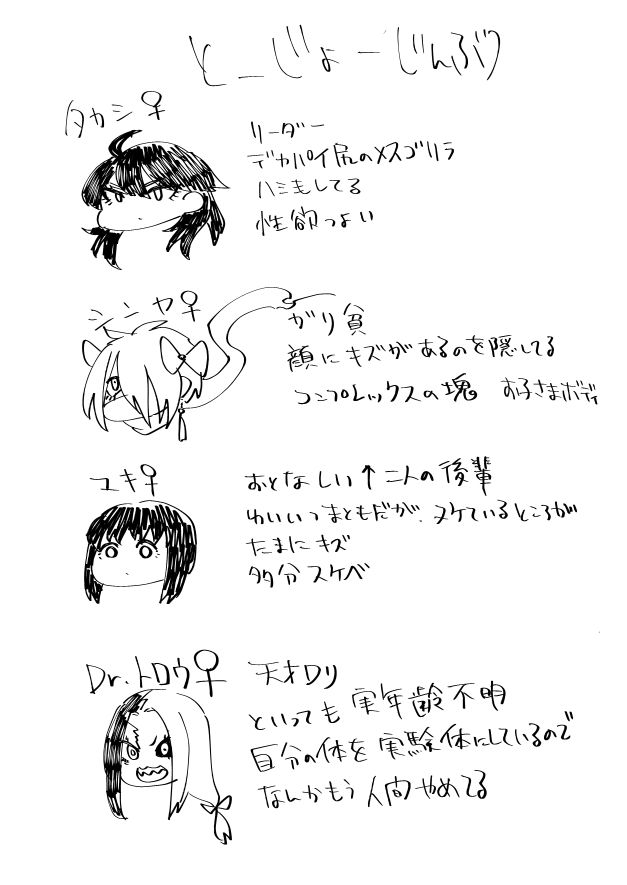 とーじょーじんぶつ
タカシ♀
リーダー
デカパイ尻のメスゴリラ
ハミ毛してる
性欲つよい
シンヤ♀
ガリ貧
顔にキズがあるのを隠してる
コンプレックスの塊 お子さまボディ
ユキ♀
おとなしい↑二人の後輩
ゆいいつまともだが、ヌケているところが
たまにキズ
多分スケベ
Dr.トロウ♀
天才ロリ
といっても実年齢不明
自分の体を実験体にしているので
なんかもう人間やめてる